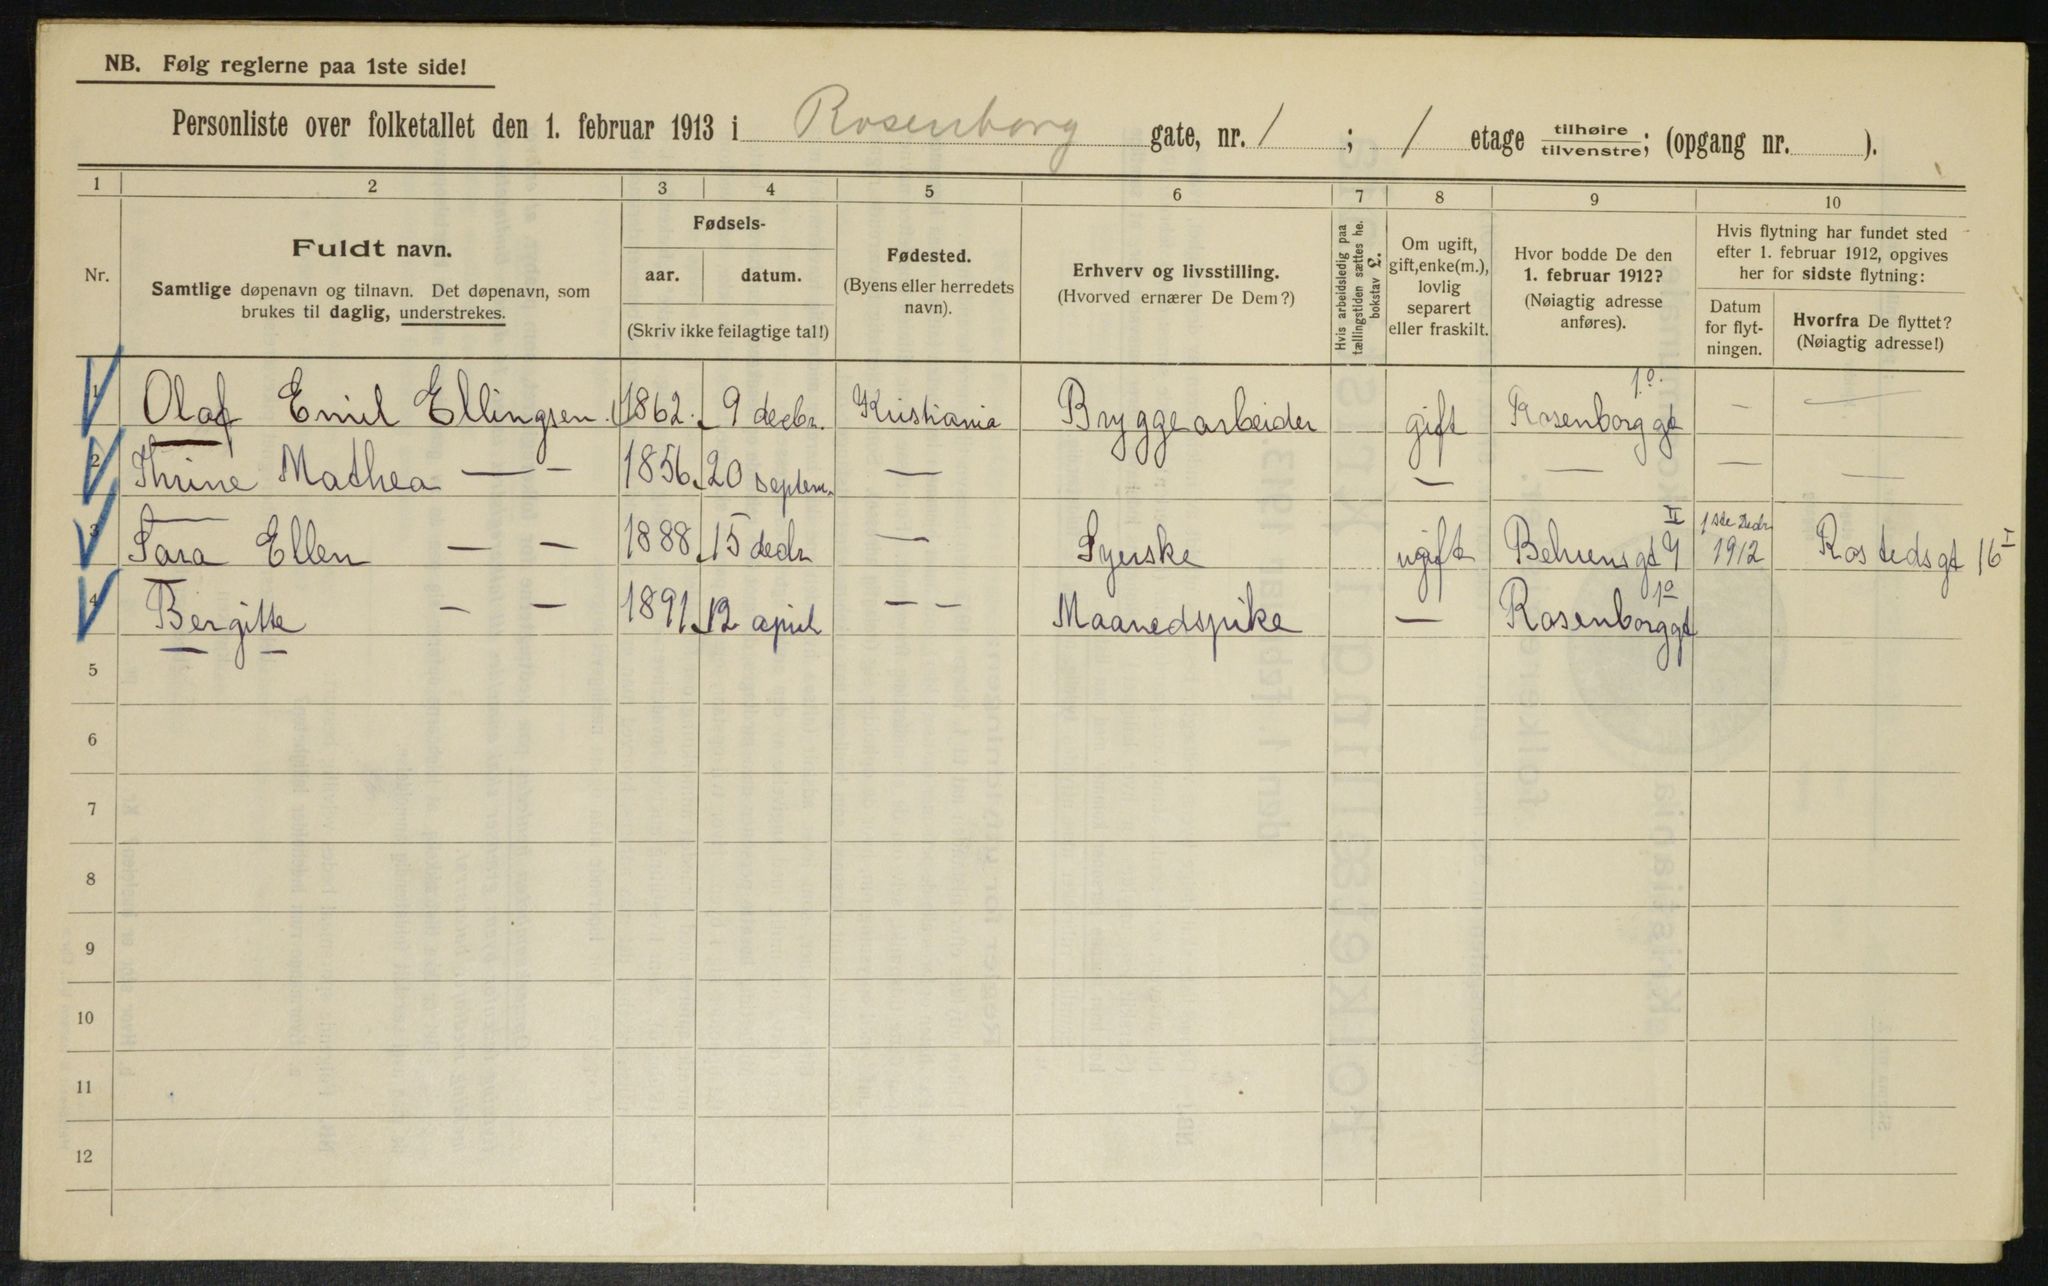 NB. Følg reglerne paa 1ste side!
Personliste over folketallet den 1. februar 1913 i Rosenborg gate, nr. 1 ; 1 etage tilhøire tilvenstre; (opgang nr. ).
1 2 3 4 5 6 7 8 9 10
Nr.
Fuldt navn.
Samtlige døpenavn og tilnavn. Det døpenavn, som
brukes til daglig, understrekes.
Fødsels-
aar. datum.
(Skriv ikke feilagtige tal!)
Fødested.
(Byens eller herredets
navn).
Erhverv og livsstilling.
(Hvorved ernærer De Dem?)
Hvis arbeidsledig paa
tællingstiden sættes he.
bokstav L.
Om ugift,
gift, enke(m.),
lovlig
separert
eller fraskilt.
Hvor bodde De den
1. februar 1912?
(Nøiagtig adresse
anføres).
Hvis flytning har fundet sted
efter 1. februar 1912, opgives
her for sidste flytning:
Datum
for flyt-
ningen.
Hvorfra De flyttet?
(Nøiagtig adresse!)
1 Olaf Emil Ellingsen. 1862. 9 decbr. Kristiania Bryggearbeider gift Rosenborggt 1o. — —
2 Thrine Mathea — — 1856. 20 septem. — — — — —
3 Sara Ellen — — 1888. 15 decbr — Syerske ugift Behrensgt 7 II 1ste Decbr 1912 Rostedsgt 16 I
4 Bergitte — — 1891. 12 april — — Maanedspike — Rosenborggt 1o
5
6
7
8
9
10
11
12